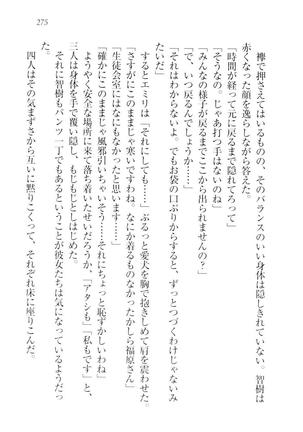 275
襷で押さえてはいるものの、そのバランスのいい身体は隠しきれていない。智樹は
赤くなった顔を逸らしながら答えた。
「時間が経って元に戻るまで隠れてろって」
「そうなの。じゃあ打つ手はないのね」
「みんなの様子が戻るまでここから出られませんの?」
「で、いつ戻るんでしょうか……」
「それはわからないよ。でもお袋の口ぶりからすると、ずっとつづくわけじゃないみ
たいだ」
するとエミリは「それにしても……」ぶるっと愛犬を胸で抱きしめて肩を震わせた。
「さすがにこのままじゃ寒いですわね。なにか着るものなかったかしら福原さん」
「生徒会室にはなにもなかったと思います……」
「確かにこのままじゃ風邪引いちゃいそう……それにちょっと恥ずかしいわね」
ようやく安全な場所に来て落ち着いたせいだろうか、「アタシも」「私もです」と
三人は身体を手で覆い隠し、もじもじとしはじめた。
そして智樹もパンツ一丁でもあるということが彼女たちは気になっているようだっ
て、四人はその気まずさから互いに黙りこくって、それぞれ床に座りこんだ。